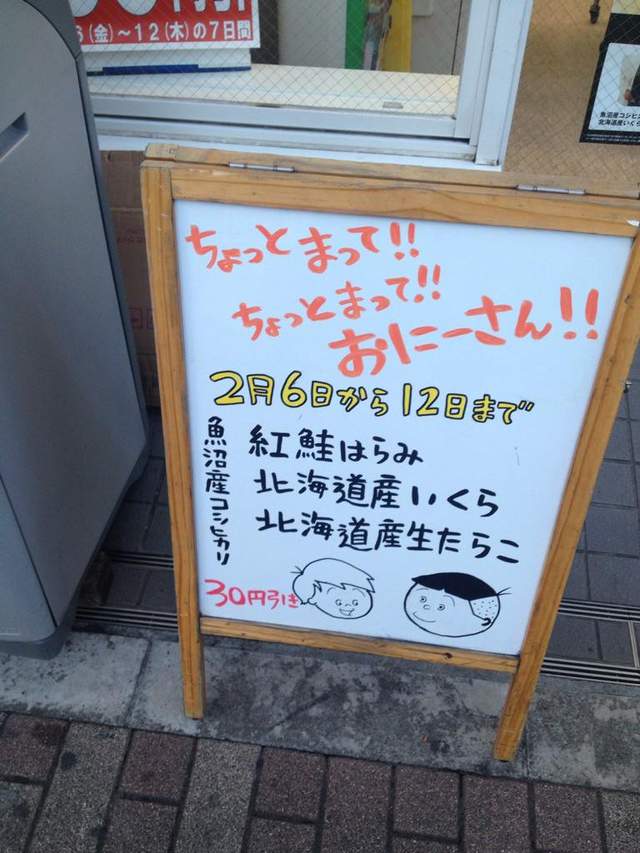 6(金)～12(木)の7日間
魚沼産コシヒカリ
北海道産いくら
ちょっとまって!!
ちょっとまって!!
おにーさん!!
2月6日から12日まで
魚沼産コシヒカリ
紅鮭はらみ
北海道産いくら
北海道産生たらこ
30円引き